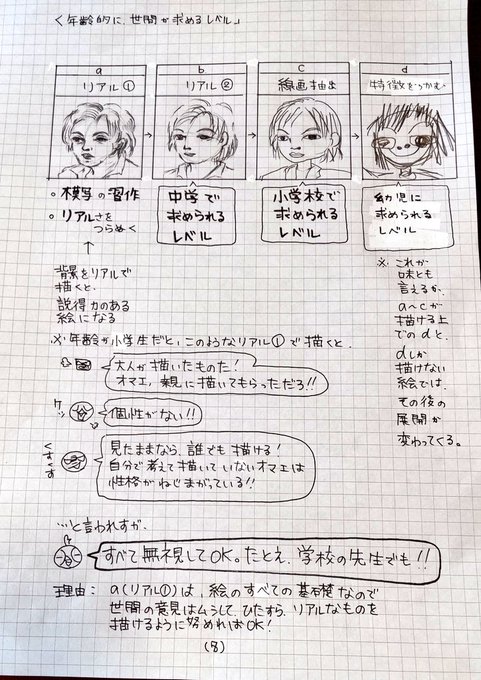 く年齢的に、世間が求めるレベル」
a
リアル①
b
リアル②
c
線画抽出
d
特徴をつかむ
。模写の習作
。リアルさを
つらぬく
中学で
求められる
レベル
小学校で
求められる
レベル
幼児に
求められる
レベル
背景をリアルで
描くと、
説得力のある
絵になる
※これが
味とも
言えるが、
a〜cが
描ける上
でのdと、
dしか
描けない
絵では、
その後の
展開が
変わってくる。
※年齢が小学生だと、このようなリアル①で描くと、
大人が描いたものだ!
オマエ、親に描いてもらっただろ!!
ケッ
個性がない!!
くすくす
見たままなら、誰でも描ける!
自分で考えて描いていないオマエは
性格がねじまがっている!!
…と言われますが、
すべて無視してOK。たとえ、学校の先生でも!!
理由:a(リアル①)は、絵のすべての基礎なので
世間の意見はムシして、ひたすら、リアルなものを
描けるように努めればOK!
(8)